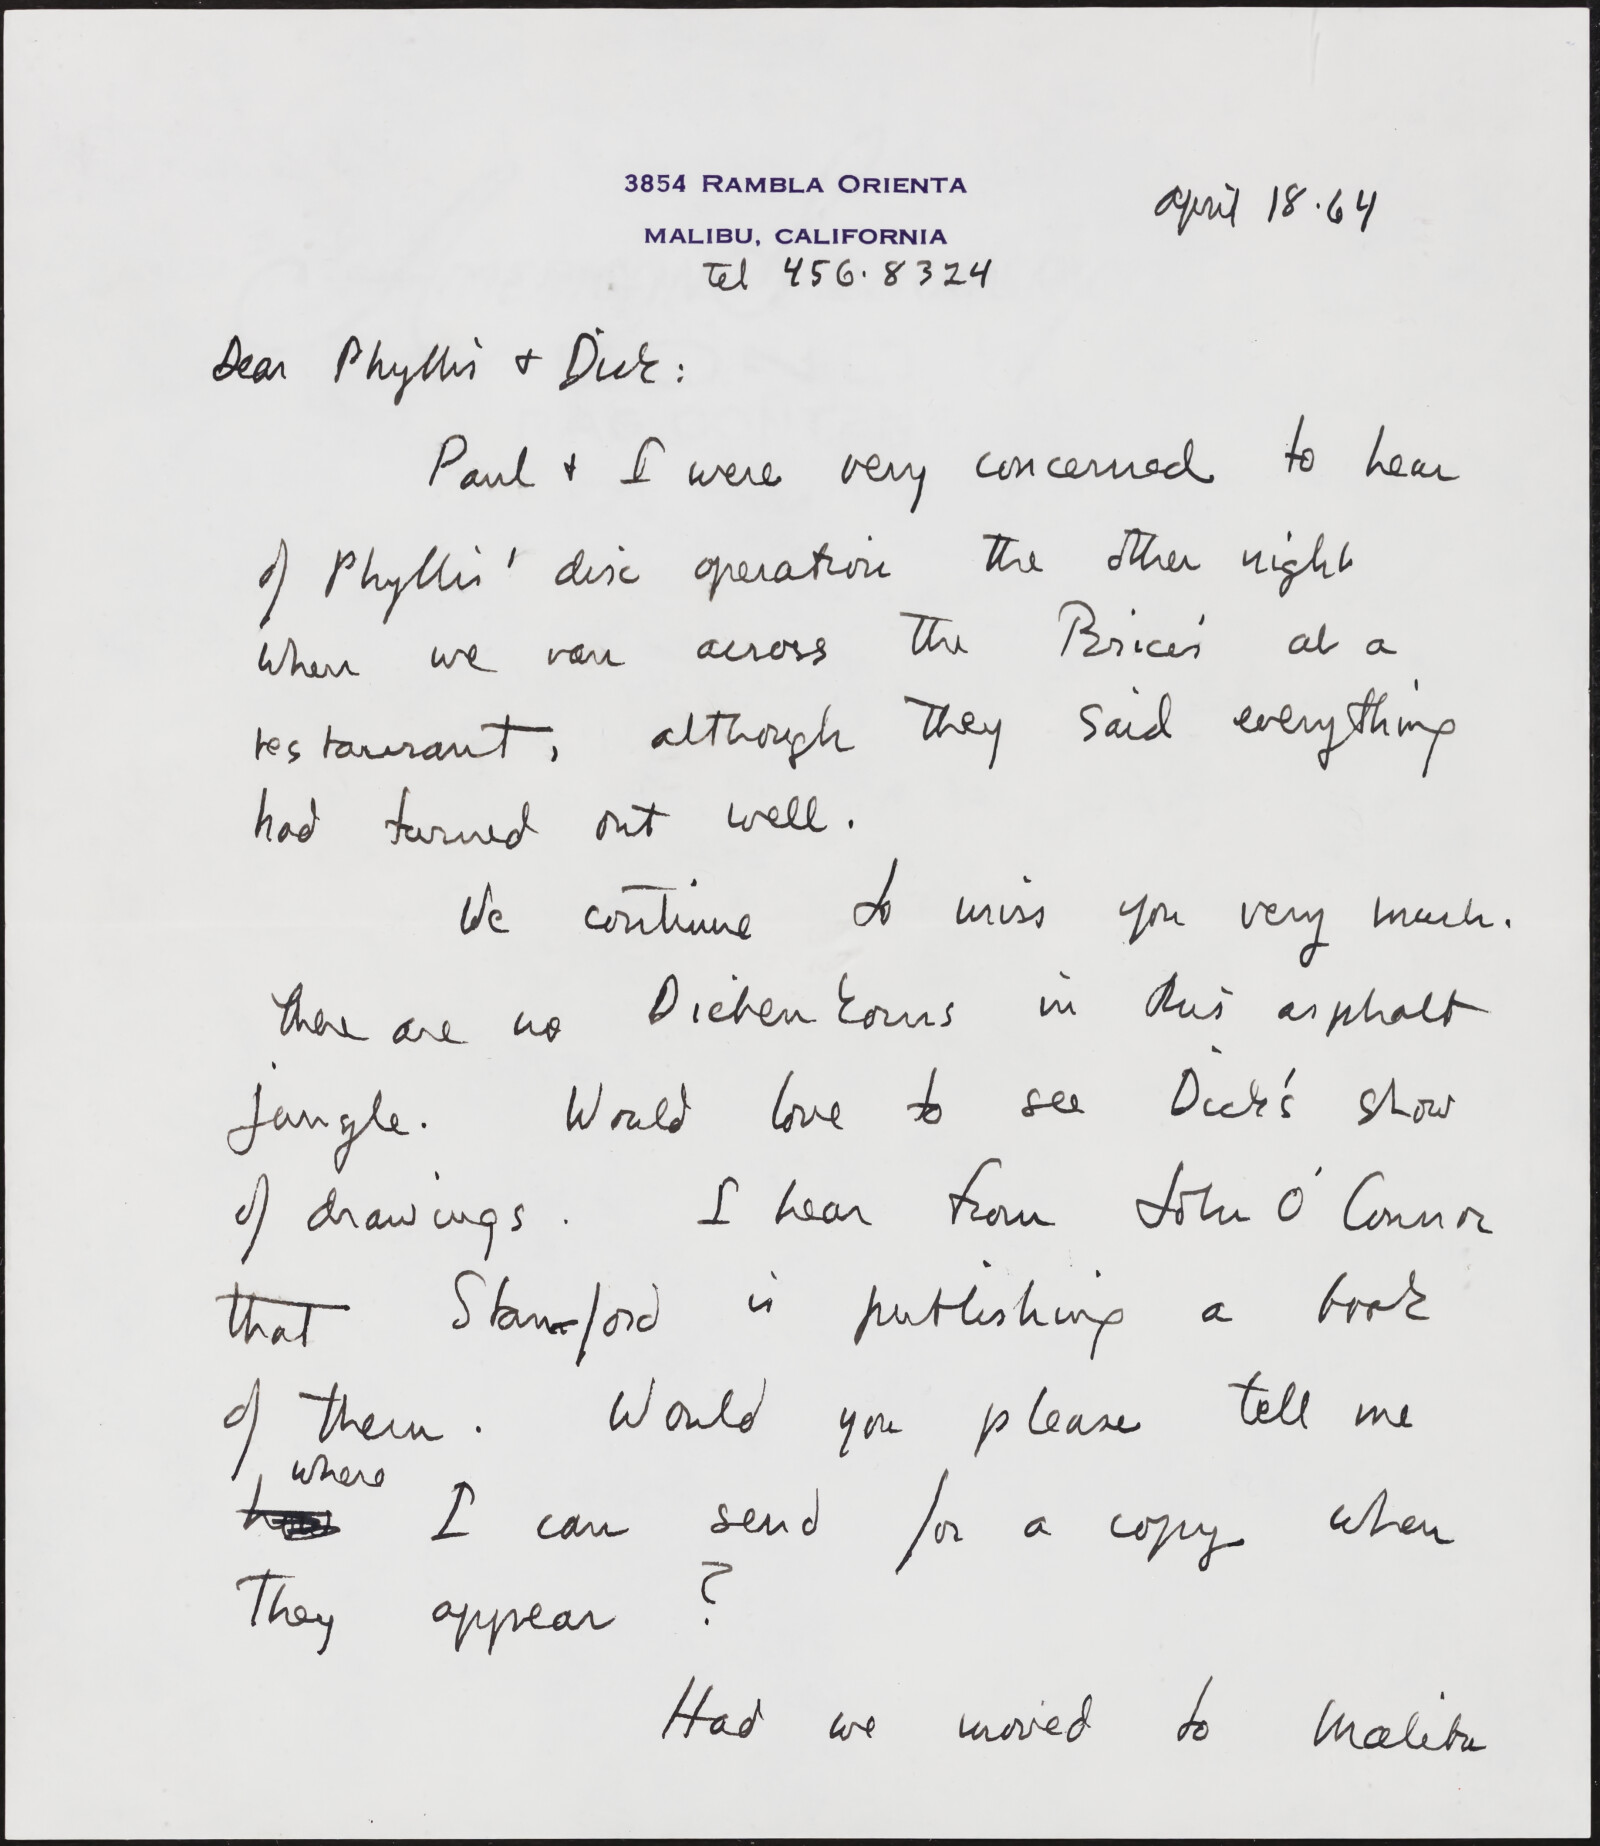 3854 RAMBLA ORIENTA
MALIBU, CALIFORNIA
Tel 456·8324
april 18·64
Dear Phyllis + Dick:
Paul + I were very concerned to hear
of Phyllis' disc operation the other night
when we ran across the Brice's at a
restaurant, although they said everything
had turned out well.
We continue to miss you very much.
there are no Diebenkorns in this asphalt
jungle. Would love to see Dick's show
of drawings. I hear from John O'Connor
that Stanford is publishing a book
of them. Would you please tell me
where
I can send for a copy when
They appear?
Had we moved to Malibu